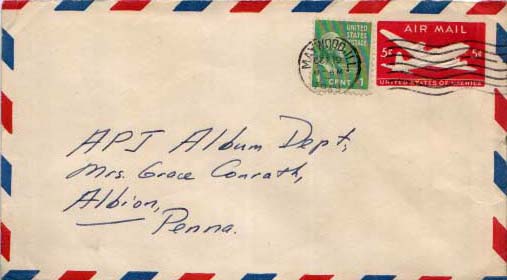 UNITED
STATES
POSTAGE
1 CENT 1
MAYWOOD ILL.
AIR MAIL
5¢ 5¢
UNITED STATES OF AMERICA
APJ Album Dept,
Mrs. Grace Conrath,
Albion,
Penna.